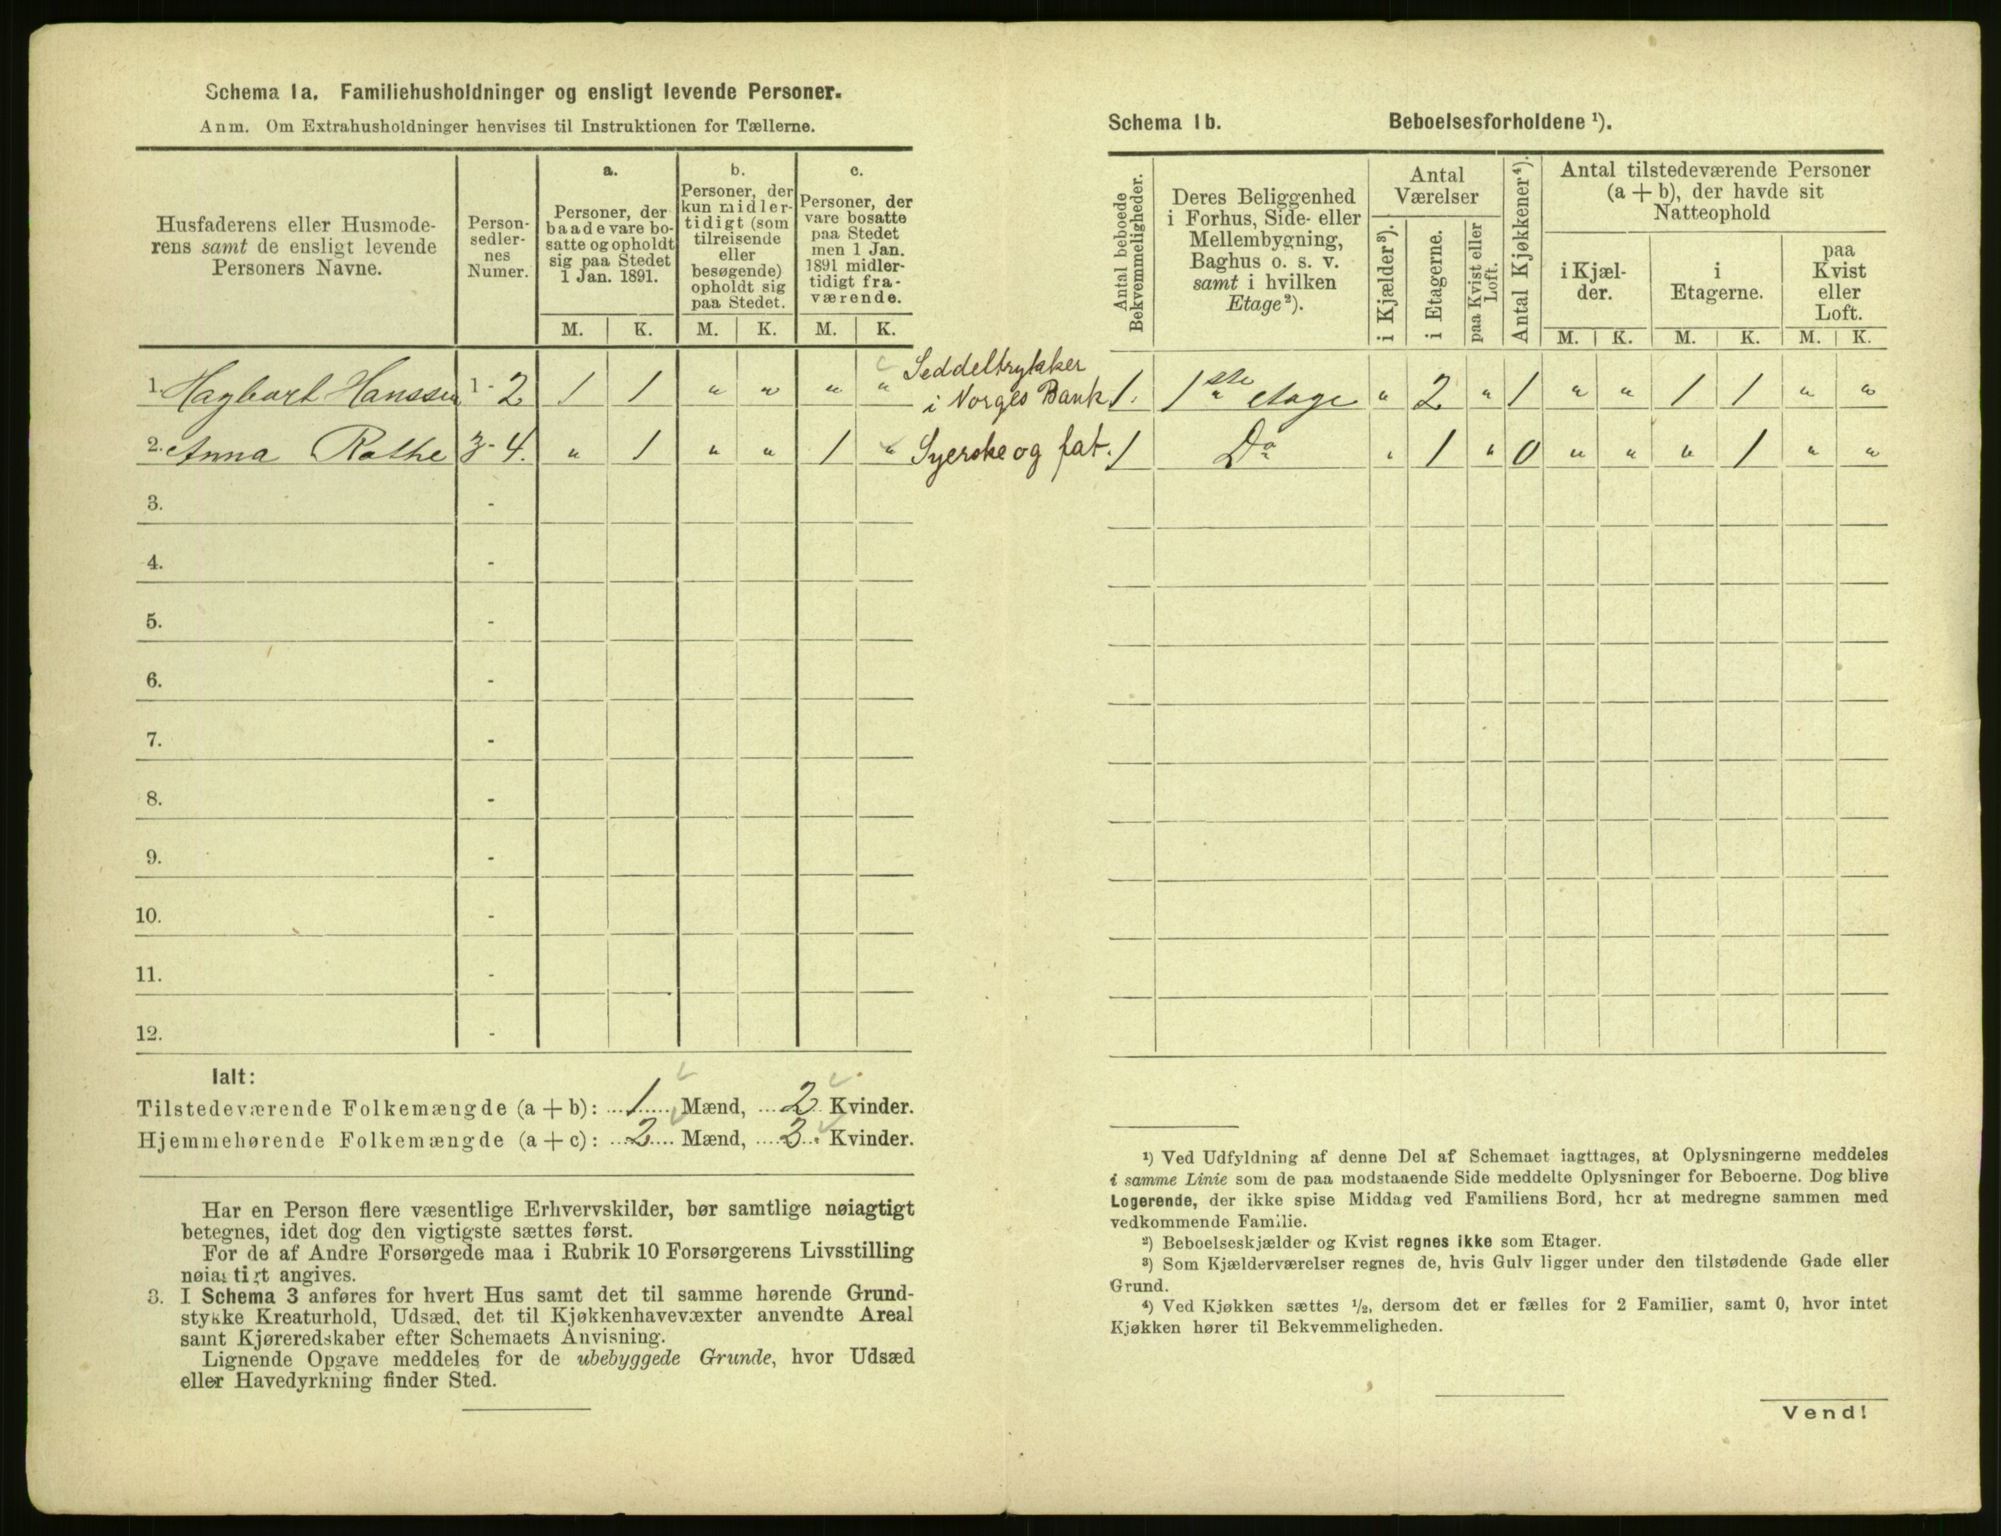 Schema 1a. Familiehusholdninger og ensligt levende Personer.
Anm. Om Extrahusholdninger henvises til Instruktionen for Tællerne.
Husfaderens eller Husmode-
rens samt de ensligt levende
Personers Navne.
Person-
sedler-
nes
Numer.
a.
Personer, der
baade vare bo-
satte og opholdt
sig paa Stedet
1 Jan. 1891.
b.
Personer, der
kun midler-
tidigt (som
tilreisende
eller
besøgende)
opholdt sig
paa Stedet.
c.
Personer, der
vare bosatte
paa Stedet
men 1 Jan.
1891 midler-
tidigt fra-
værende.
M. K. M. K. M. K.
1. Hagbart Hanssen 1 - 2 1 1 " " " " Seddeltrykker
i Norges Bank
2. Anna Rothe 3 - 4. " 1 " " 1 " Syerske og fat.
3. -
4. -
5. -
6. -
7. -
8. -
9. -
10. -
11. -
12. -
Ialt:
Tilstedeværende Folkemængde (a + b): 1 Mænd, 2 Kvinder.
Hjemmehørende Folkemængde (a + c): 2 Mænd, 3. Kvinder.
Har en Person flere væsentlige Erhvervskilder, bør samtlige nøiagtigt
betegnes, idet dog den vigtigste sættes først.
For de af Andre Forsørgede maa i Rubrik 10 Forsørgerens Livsstilling
nøiagtigt angives.
3. I Schema 3 anføres for hvert Hus samt det til samme hørende Grund-
stykke Kreaturhold, Udsæd, det til Kjøkkenhavevæxter anvendte Areal
samt Kjøreredskaber efter Schemaets Anvisning.
Lignende Opgave meddeles for de ubebyggede Grunde, hvor Udsæd
eller Havedyrkning finder Sted.
Schema 1b. Beboelsesforholdene ¹).
Antal beboede
Bekvemmeligheder.
Deres Beliggenhed
i Forhus, Side- eller
Mellembygning,
Baghus o. s. v.
samt i hvilken
Etage²).
Antal
Værelser
i Kjælder³).
i Etagerne.
paa Kvist eller
Loft.
Antal Kjøkkener⁴).
Antal tilstedeværende Personer
(a + b), der havde sit
Natteophold
i Kjæl-
der.
i
Etagerne.
paa
Kvist
eller
Loft.
M. K. M. K. M. K.
1. 1ste etage " 2 " 1 " " 1 1 " "
1 Do " 1 " 0 " " " 1 " "
¹) Ved Udfyldning af denne Del af Schemaet iagttages, at Oplysningerne meddeles
i samme Linie som de paa modstaaende Side meddelte Oplysninger for Beboerne. Dog blive
Logerende, der ikke spise Middag ved Familiens Bord, her at medregne sammen med
vedkommende Familie.
²) Beboelseskjælder og Kvist regnes ikke som Etager.
³) Som Kjælderværelser regnes de, hvis Gulv ligger under den tilstødende Gade eller
Grund.
⁴) Ved Kjøkken sættes ½, dersom det er fælles for 2 Familier, samt 0, hvor intet
Kjøkken hører til Bekvemmeligheden.
Vend!